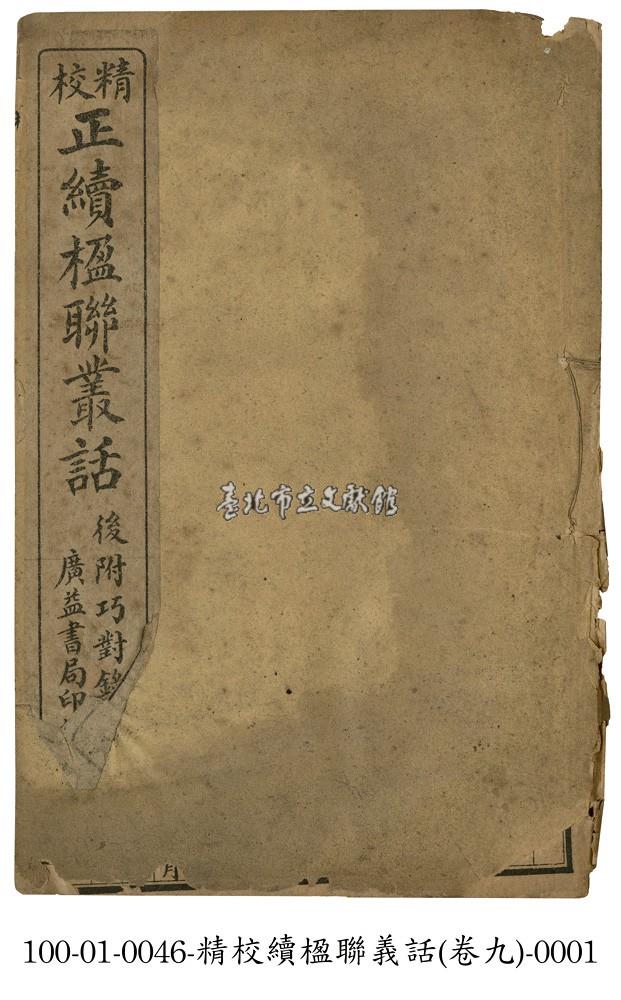 精校
正續楹聯叢話
後附巧對錄
廣益書局印
臺北市立文獻館
月
100-01-0046-精校續楹聯義話(卷九)-0001